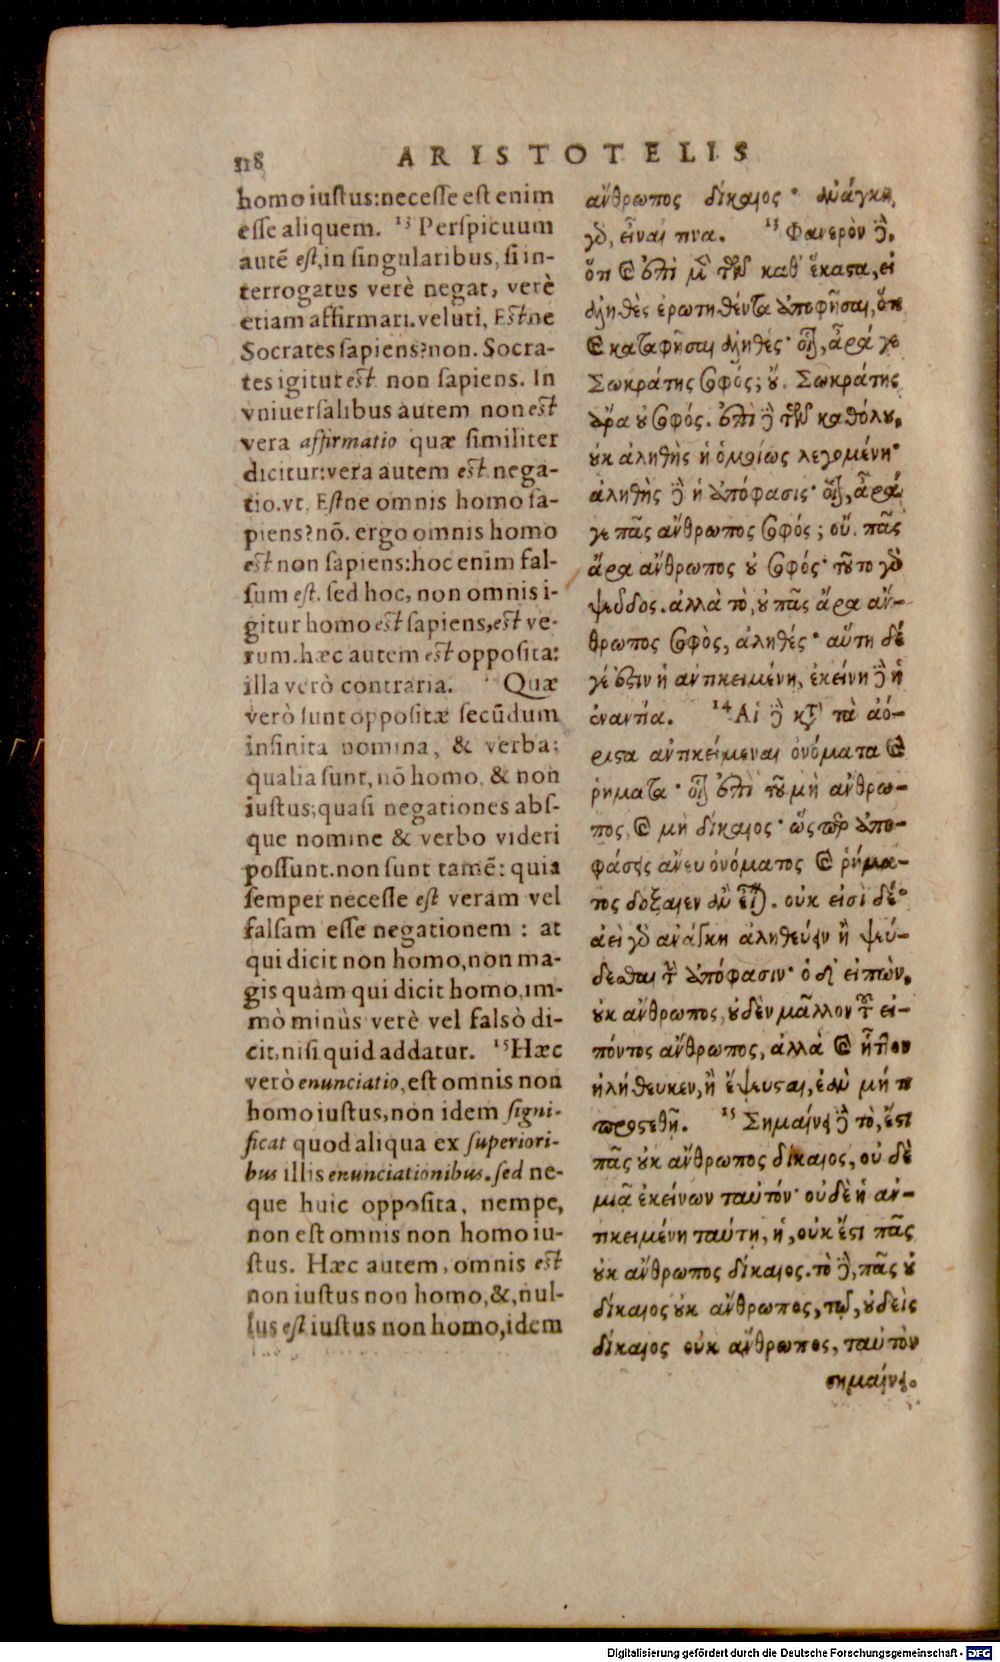 118 ARISTOTELIS
homo iuſtus:neceſſe eſt enim
eſſe aliquem. 13 Perſpicuum
autē eſt,in ſingularibus, ſi in-
terrogatus verè negat, verè
etiam affirmari.veluti, Eſtne
Socrates ſapiens?non. Socra-
tes igitur eſt non ſapiens. In
vniuerſalibus autem non eſt
vera affirmatio quæ ſimiliter
dicitur:vera autem eſt nega-
tio.vt, Eſtne omnis homo ſa-
piens?nō. ergo omnis homo
eſt non ſapiens:hoc enim fal-
ſum eſt. ſed hoc, non omnis i-
gitur homo eſt ſapiens,eſt ve-
rum.hæc autem eſt oppoſita:
illa verò contraria. Quæ
verò ſunt oppoſitæ ſecūdum
infinita nomina, & verba;
qualia ſunt, nō homo, & non
iuſtus;quaſi negationes abſ-
que nomine & verbo videri
poſſunt.non ſunt tamē: quia
ſemper neceſſe eſt veram vel
falſam eſſe negationem : at
qui dicit non homo,non ma-
gis quàm qui dicit homo,im-
mò minùs verè vel falsò di-
cit,niſi quid addatur. 15 Hæc
verò enunciatio, eſt omnis non
homo iuſtus,non idem ſigni-
ficat quod aliqua ex ſuperiori-
bus illis enunciationibus. ſed ne-
que huic oppoſita, nempe,
non eſt omnis non homo iu-
ſtus. Hæc autem, omnis eſt
non iuſtus non homo,&,nul-
lus eſt iuſtus non homo,idem
ἄνθρωπος δίκαιος· ἀνάγκη
γὸ, εἶναι τινα. 13 Φανερὸν ϳ,
ὅτι ϗ ἐπὶ μ τῶν καθ' ἕκαστα, εἰ
ἀληθὲς ἐρωτηθέντα ἀποφῆσαι, ὅτι
ϗ καταφῆσαι ἀληθές· οἷον, ἆρά γε
Σωκράτης σοφός; ȣ. Σωκράτης
ἄρα ȣ σοφός. ἐπὶ δὲ τῶν καθόλȣ,
ȣκ ἀληθὴς ἡ ὁμοίως λεγομένη·
ἀληθὴς δὲ ἡ ἀπόφασις· οἷον, ἆρά
γε πᾶς ἄνθρωπος σοφός; οὔ. πᾶς
ἄρα ἄνθρωπος ȣ σοφός· τȣτο γὸ
ψεῦδος. ἀλλὰ τὸ, ȣ πᾶς ἄρα ἄν-
θρωπος σοφὸς, ἀληθές· αὕτη δέ
γέ ἐστιν ἡ ἀντικειμένη, ἐκείνη δὲ ἡ
ἐναντία. 14 Αἱ δὲ κτ τὰ ἀό-
ριστα ἀντικείμεναι ὀνόματα ϗ
ῥήματα· οἷον ἐπὶ τȣ μὴ ἄνθρω-
πος, ϗ μὴ δίκαιος· ὥσπερ ἀπο-
φάσεις ἄνευ ὀνόματος ϗ ῥήμα-
τος δόξαιεν ἂν εἶναι. οὐκ εἰσὶ δέ·
ἀεὶ γὸ ἀνάγκη ἀληθεύειν ἢ ψεύ-
δεσθαι τὴν ἀπόφασιν· ὁ δ' εἰπὼν,
ȣκ ἄνθρωπος, ȣδὲν μᾶλλον τȣ εἰ-
πόντος ἄνθρωπος, ἀλλὰ ϗ ἧττον
ἠλήθευκεν, ἢ ἔψευσται, ἐὰν μή τι
προστεθῇ. 15 Σημαίνει δὲ τὸ, ἔστι
πᾶς ȣκ ἄνθρωπος δίκαιος, οὐ δὲ
μιᾷ ἐκείνων ταὐτόν· οὐδὲ ἡ ἀν-
τικειμένη ταύτῃ, ἡ, οὐκ ἔστι πᾶς
ȣκ ἄνθρωπος δίκαιος. τὸ δὲ, πᾶς ȣ
δίκαιος ȣκ ἄνθρωπος, τῷ, ȣδεὶς
δίκαιος οὐκ ἄνθρωπος, ταὐτὸν
σημαίνει.
Digitalisierung gefördert durch die Deutsche Forschungsgemeinschaft - DFG